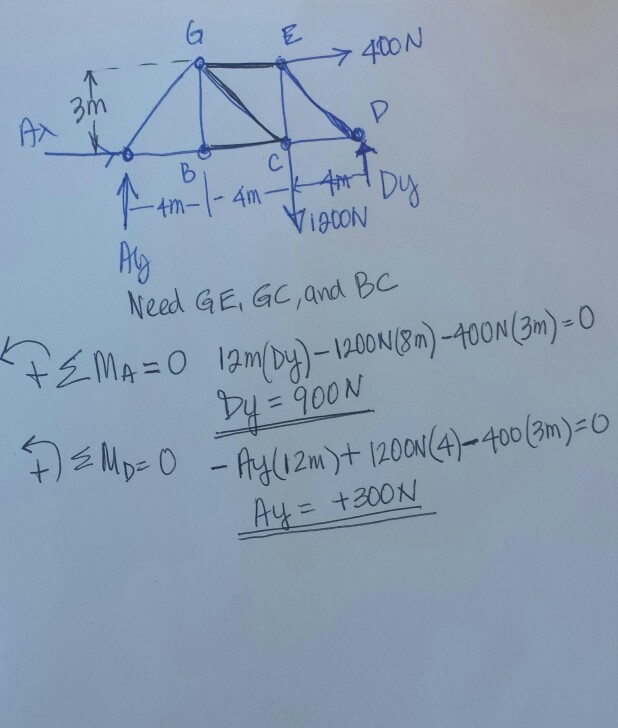 G E 400N
3m D
Ax B C
4m 4m 4m Dy
1200N
Ay
Need GE, GC, and BC
+ ΣMA = 0 12m(Dy) - 1200N(8m) - 400N(3m) = 0
Dy = 900N
+) ΣMD = 0 - Ay(12m) + 1200N(4) - 400(3m) = 0
Ay = +300N